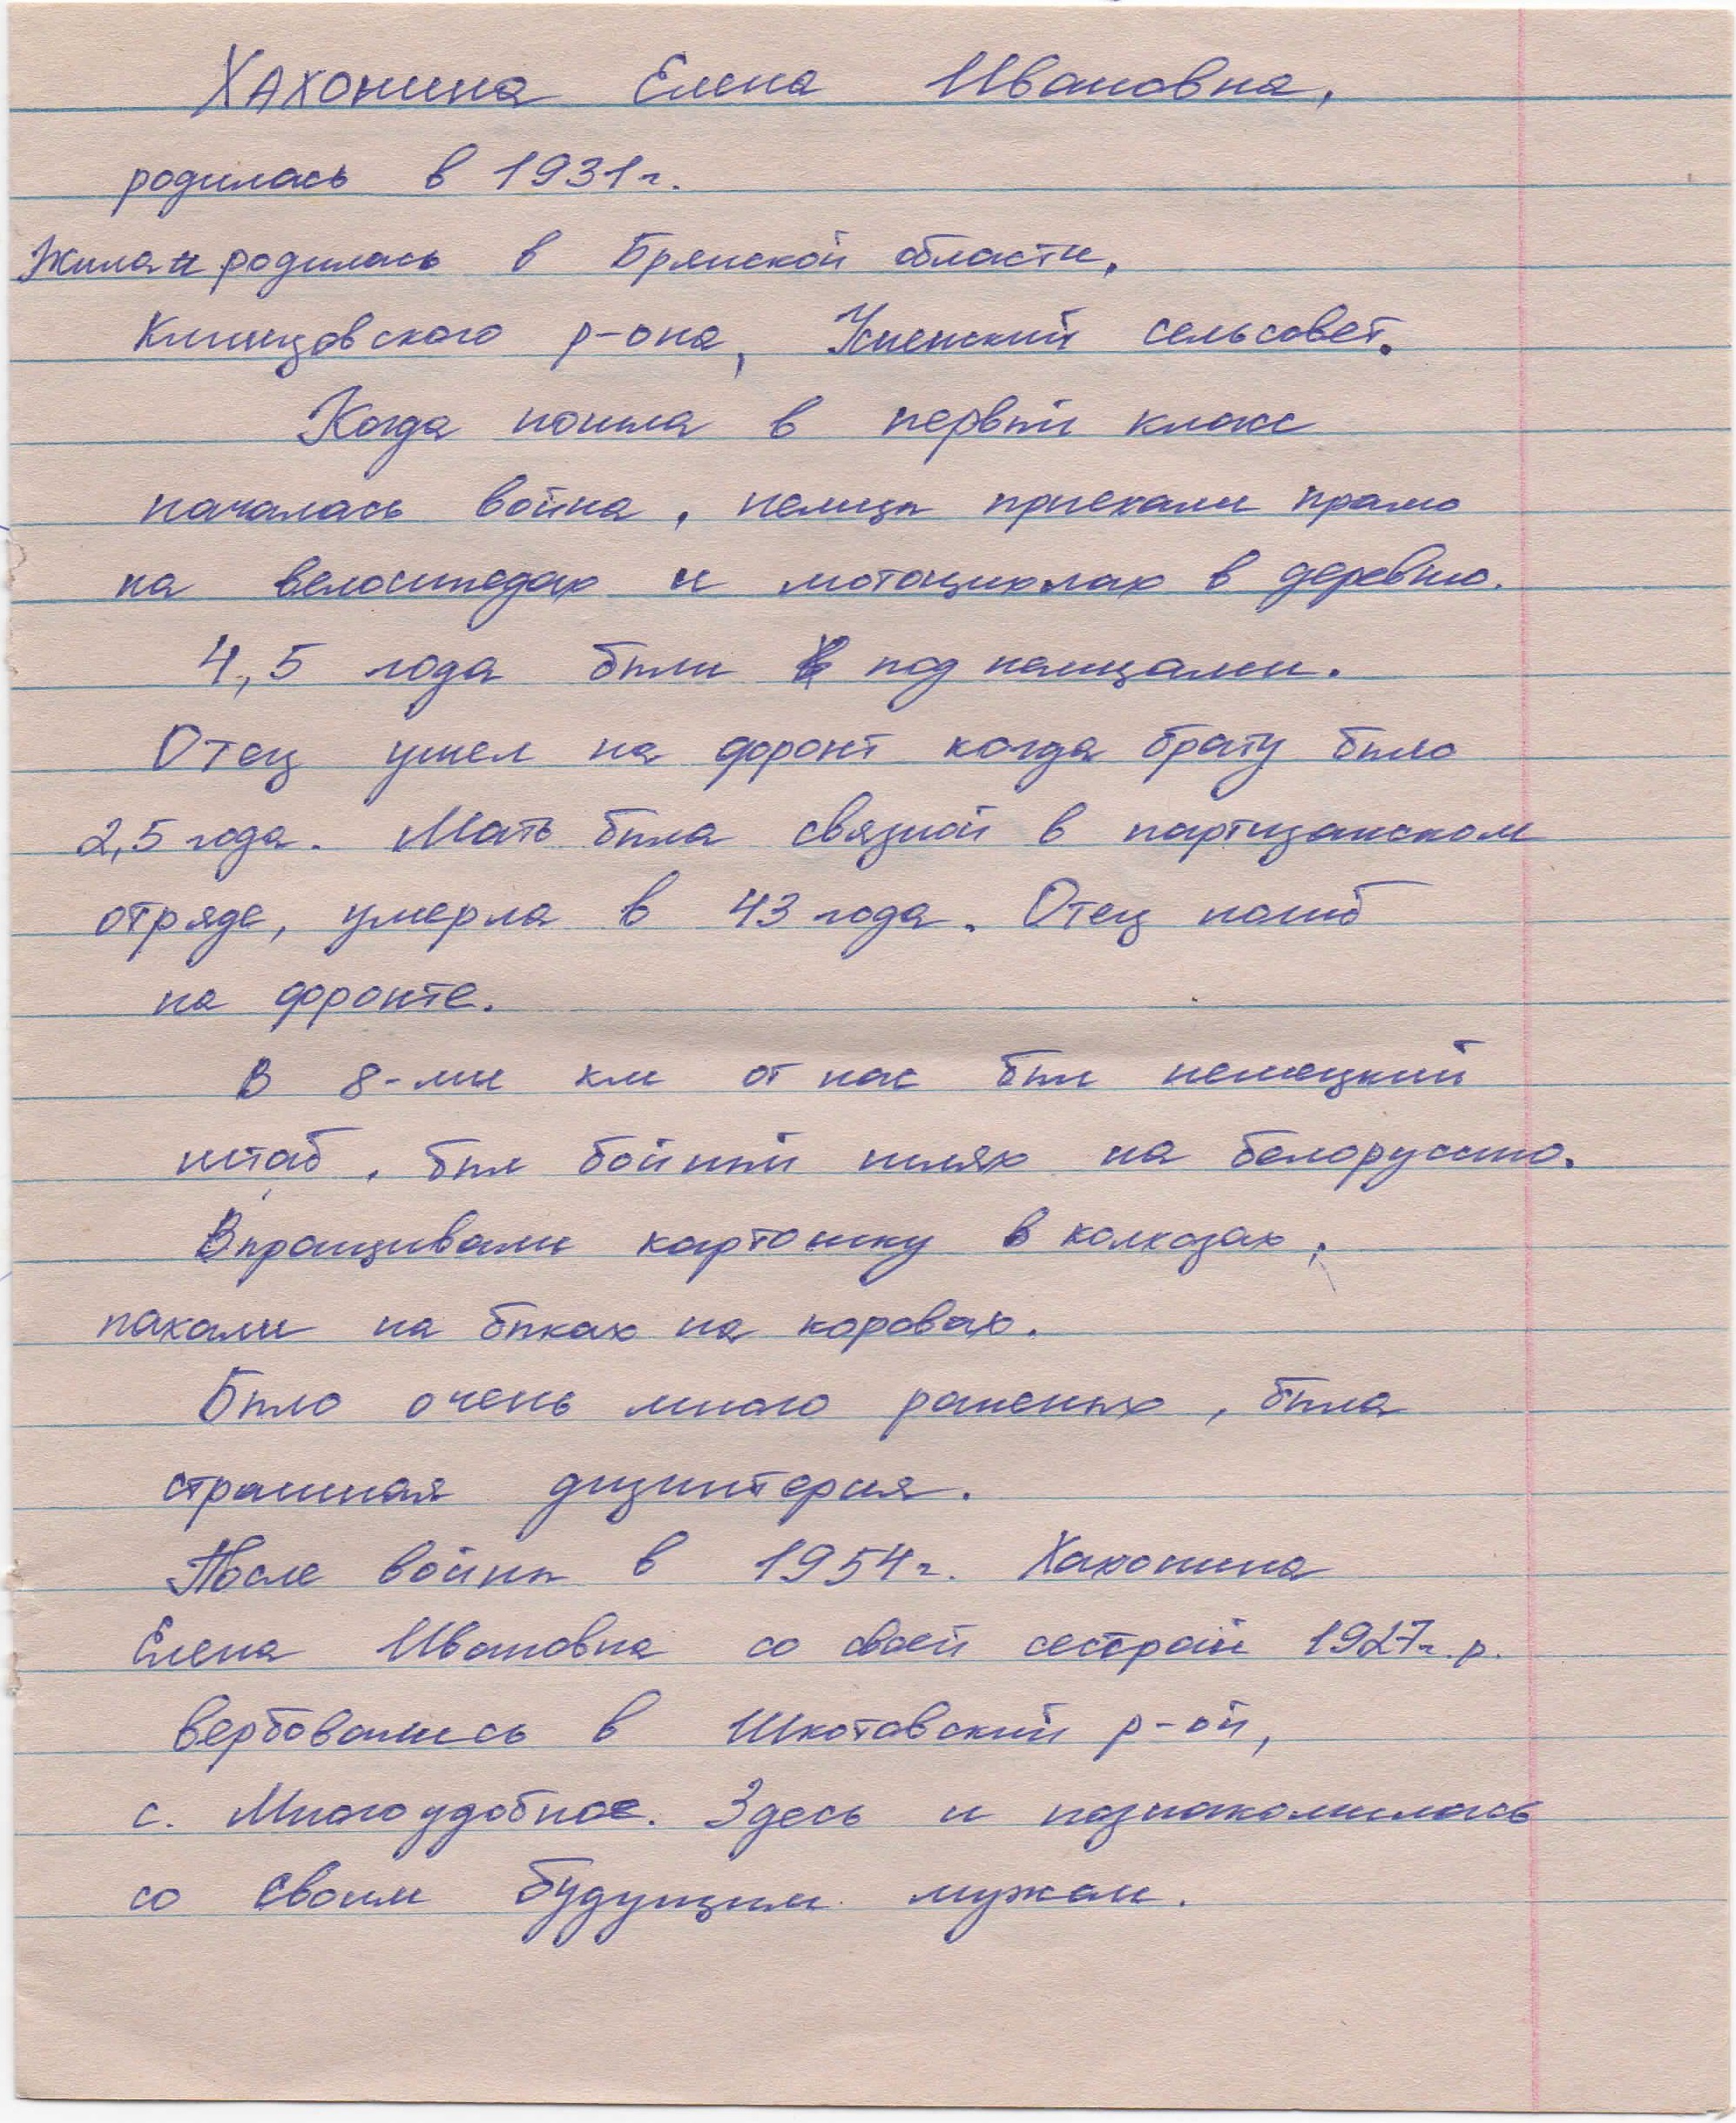 Хахонина Елена Ивановна,
родилась в 1931г.
Жила и родилась в Брянской области,
Клинцовского р-она, Успенский сельсовет.
Когда пошла в первый класс
началась война, немцы приехали прямо
на велосипедах и мотоциклах в деревню.
4,5 года были под немцами.
Отец ушел на фронт когда брату было
2,5 года. Мать была связной в партизанском
отряде, умерла в 43 года. Отец погиб
на фронте.
В 8-ми км от нас был немецкий
штаб, был бойный шлях на белоруссию.
Впращивали картошку в колхозах,
пахали на быках на коровах.
Было очень много раненых, была
страшная дизинтерия.
После войны в 1954г. Хахонина
Елена Ивановна со своей сестрой 1927г.р.
вербовались в Шкотовский р-он,
с. Многоудобное. Здесь и познакомилась
со своим будущим мужем.